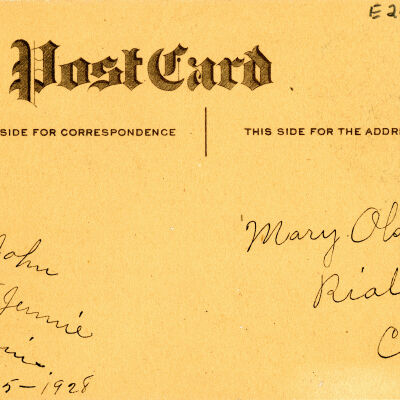 E2
Post Card
SIDE FOR CORRESPONDENCE
THIS SIDE FOR THE ADDRE
Mary Ols
John
Rial
Jennie
C
5-1928